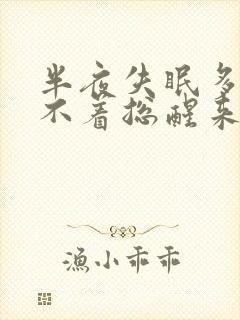 半夜失眠多
不着总醒来
渔小乖乖